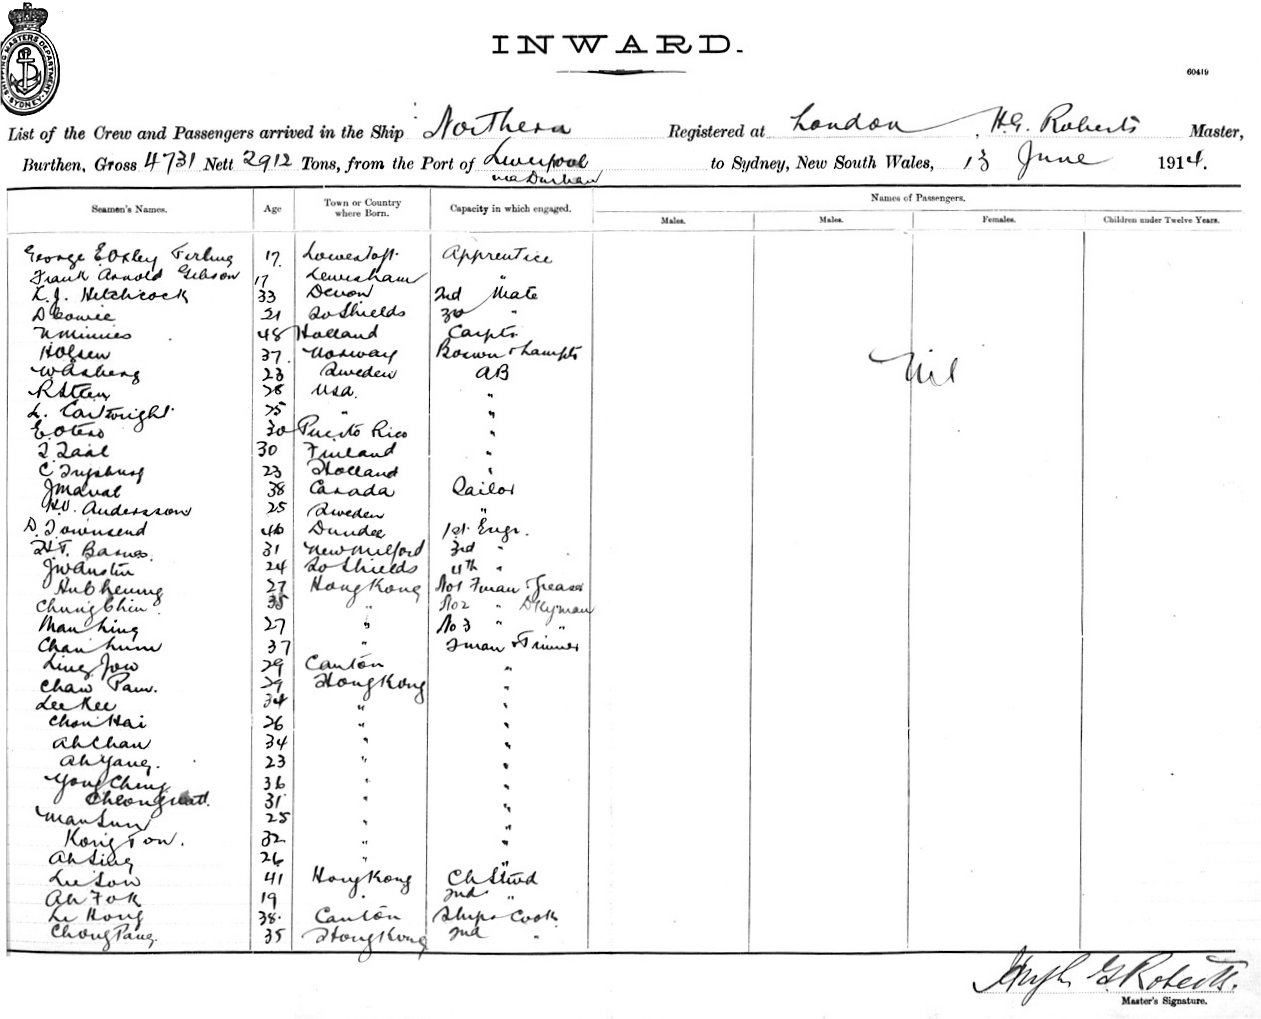 SHIPPING MASTERS DEPARTMENT. SYDNEY.
INWARD.
60419
List of the Crew and Passengers arrived in the Ship Northern Registered at London, H.G. Roberts Master,
Burthen, Gross 4731 Nett 2912 Tons, from the Port of Liverpool to Sydney, New South Wales, 13 June 1914.
via Durban
Seamen's Names. Age Town or Country where Born. Capacity in which engaged. Names of Passengers.
Males. Males. Females. Children under Twelve Years.
George E Oxley 17 Lowestoft Apprentice
Frank Arnold Gibson 17 Lewisham "
L.J. Hitchcock 33 Devon 2nd Mate
D Cowie 21 So Shields 3rd "
N Minnies 48 Holland Carptr
H Olsen 37 Norway Boswn & Lamptr
23 Sweden AB
R Steen 28 USA "
L. Cartwright 25 " "
E Otero 30 Puerto Rico "
30 Finland "
C 23 Holland "
38 Canada Sailor
H.V. Andersson 25 Sweden "
D. Townsend 46 Dundee 1st Engr.
H.T. Barnes 31 New Milford 3rd "
J W Austin 24 So Shields 4th "
Hub Keung 27 Hong Kong No1 Fman & Greaser
Chung Chin 35 " No2 " Dkyman
Man Hing 27 " No 3 " "
Chan Lum 37 " Fman & Trimmer
Ling Jow 29 Canton "
Chaw Pam 29 Hong Kong "
Lee Kee 34 " "
Chon Hai 26 " "
Ah Chan 34 " "
Ah Yang. 23 " "
Yong Ching 36 " "
Cheong 31 " "
Man Sun 25 " "
Kong Tow. 32 " "
Ah Sing 26 " "
Lee Son 41 Hong Kong Ch Stwd
Ah Fok 19 " 2nd "
Li Hong 38 Canton Ships Cook
Chong Pang 35 Hong Kong 2nd "
Nil
Joseph G Roberts.
Master's Signature.